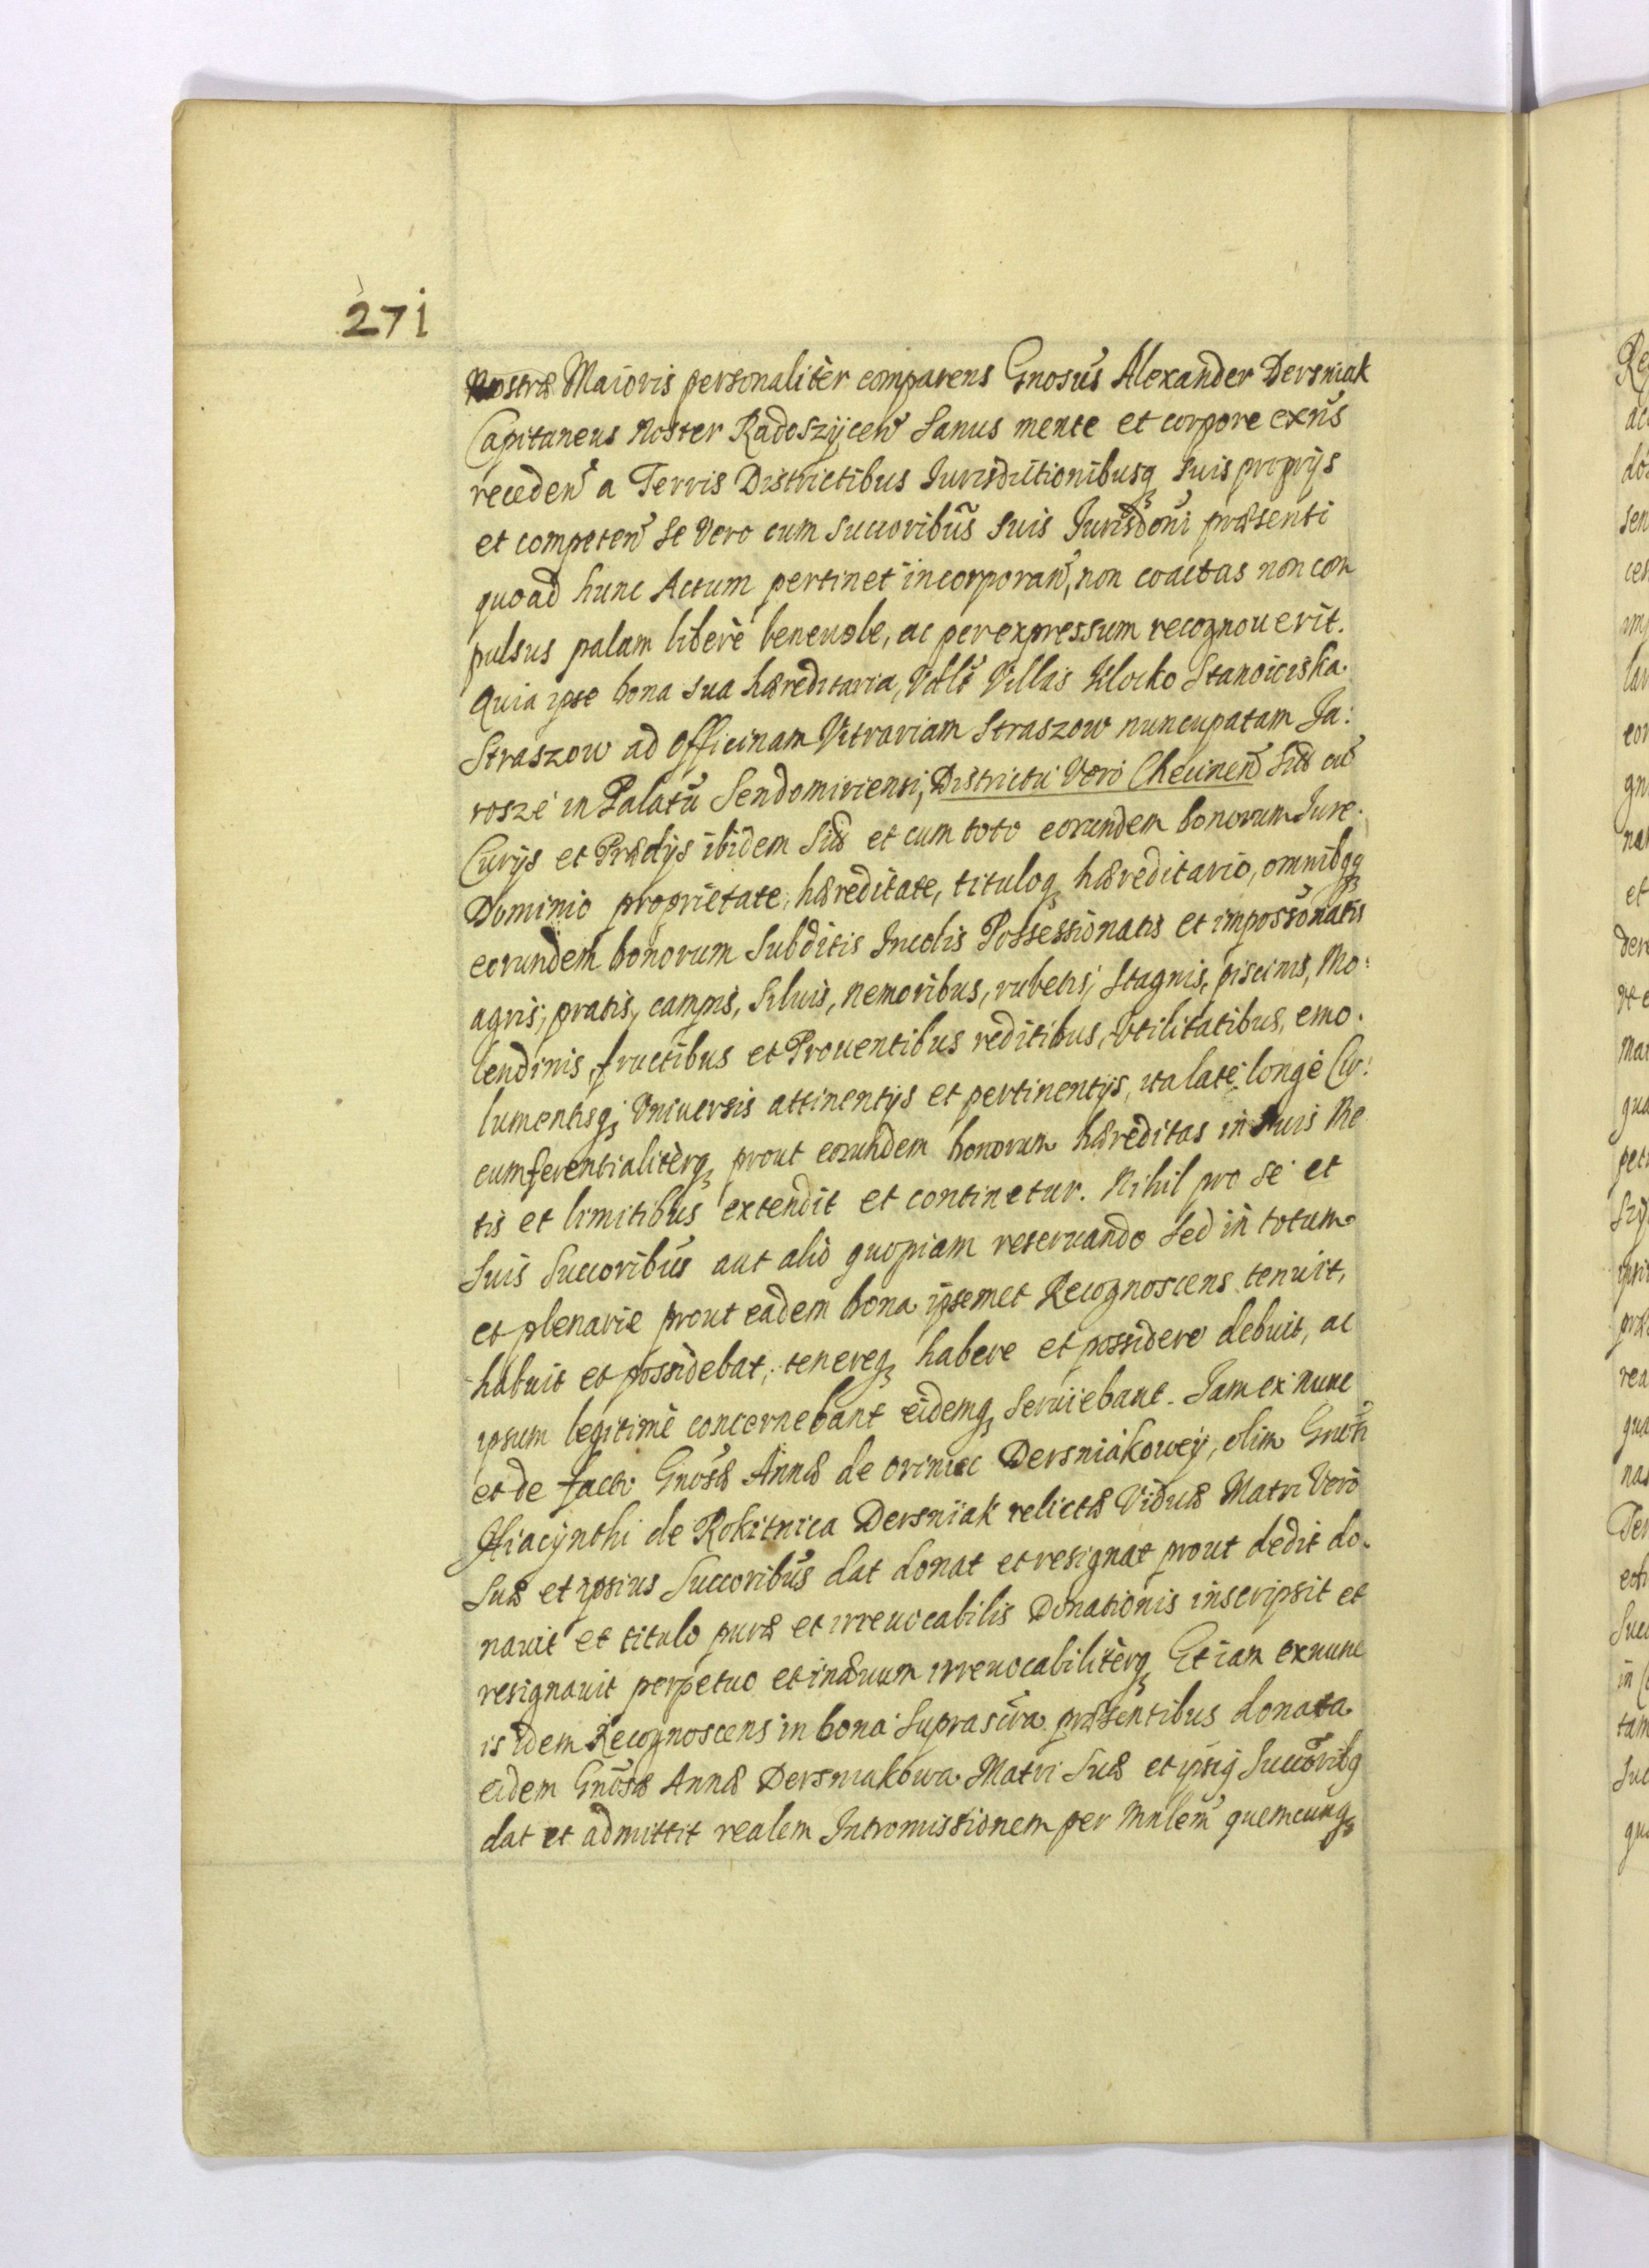 271
Nostræ Maioris personaliter comparens Gnosus Alexander Dersniak
Capitaneus Noster Radoszycen Sanus mente et corpore exns
receden a Terris Districtibus Iurisdictionibusq suis proprijs
et competen se vero cum succoribus suis Iurisdoni præsenti
quoad hunc Actum pertinet incorporan, non coactus non com
pulsus palam libere beneuole, ac per expressum recognouerit.
Quia ipse bona sua hæreditaria, Vdlt Villas Klocko Stanoiciska
Straszow ad officinam Vitrariam Straszow nuncupatam Ja:
rosze in Palatu Sendomiriensi, Districtu Vero Checinen Sita cu
Curijs et Prædijs ibidem Sitis et cum toto eorundem bonorum Iure
Dominio proprietate, hæreditate, tituloq hæreditario, omnibqq
eorundem bonorum Subditis Incolis Possessionatis et impossonatis
agris, pratis, campis, Siluis, Nemoribus, rubetis, Stagnis, piscinis, Mo:
lendinis, fructibus et Prouentibus reditibus, vtilitatibus, emo.
lumentisq; Vniuersis attinentijs et pertinentijs, ita late, longe Cir:
cumferentialiterq prout eorundem bonorum hæreditas in suis Me
tis et limitibus extendit et continetur. Nihil pro se et
Suis Succoribus aut alio quopiam reseruando Sed in totum
et plenarie prout eadem bona ipsemet Recognoscens tenuit,
habuit et possidebat, tenereq habere et possidere debuit, ac
ipsum legitime concernebant eidemq seruiebant. Iam ex nunc
et de facto Gnosæ Annæ de oriniec Dersniakowey, olim Gnosi
Hiacynthi de Rokitnica Dersniak relictæ Viduæ Matri Vero
Suæ et ipsius Succoribus dat donat et resignat prout dedit do.
nauit et titulo puræ et irreuocabilis Donationis inscripsit et
resignauit perpetuo et in æuum irreuocabiliterq Et iam exnunc
is idem Recognoscens in bona suprascra præsentibus donata
eidem Gnosæ Annæ Dersniakowa Matri Suæ et ipsiq Succoribq
dat et admittit realem Intromissionem per Mnlem quemcunq